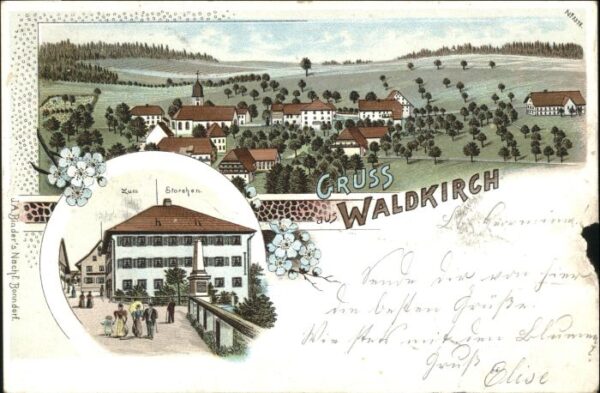 GRUSS
aus WALDKIRCH
Zum Storchen.
J.A. Binder's Nachf. Bonndorf.
Sende dir von hier
die besten Grüße.
Wie mit den Blumen
Gruß
Olive